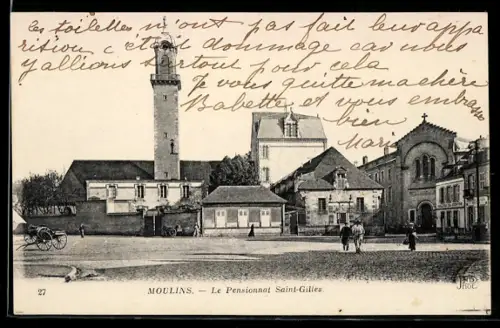 les toilettes n'ont pas fait leur appa
rition c'était dommage car nous
y allions surtout pour cela
Je vous quitte ma chère
Babette et vous embras
bien
Marie
27
MOULINS. - Le Pensionnat Saint-Gilles
ND
PHOT.